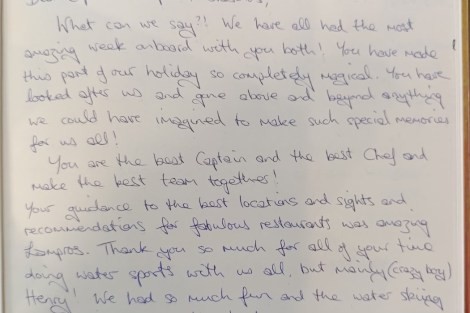 What can we say?! We have all had the most
amazing week onboard with you both! You have made
this part of our holiday so completely magical. You have
looked after us and gone above and beyond anything
we could have imagined to make such special memories
for us all!
You are the best Captain and the best Chef and
make the best team together!
Your guidance to the best locations and sights and
recommendations for fabulous restaurants was amazing
Lampros. Thank you so much for all of your time
doing water sports with us all, but mainly (crazy boy)
Henry! We had so much fun and the water skiing